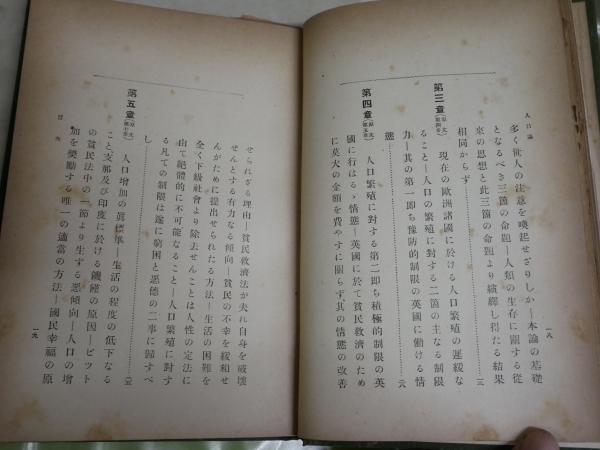 人口論
一八
多く世人の注意を喚起せざりしか―本論の基礎
となるべき三箇の命題―人類の生存に關する從
來の思想と此三箇の命題より演繹し得たる結果
相同からず
三
第三章(原文第四章)
現在の歐洲諸國に於ける人口繁殖の遲緩な
ること―人口の繁殖に對する二箇の主なる制限
力―其の第一即ち豫防的制限の英國に働ける情
態
六八
第四章(原文第五章)
人口繁殖に對する第二即ち積極的制限の英
國に行はるゝ情態―英國に於て貧民救濟のため
に莫大の金額を費やすに關らず其の情態の改善
せられざる理由―貧民救濟法が夫れ自身を破壞
せんとする有力なる傾向―貧民の不幸を緩和せ
んがために提出せられたる方法―生活の困難を
全く下級社會より除去せんことは人性の定法に
由て絕體的に不可能なること―人口繁殖に對す
る凡ての制限は遂に窮困と惡德の二事に歸すべ
し
第五章(原文第七章)
人口增加の眞標準―生活の程度の低下なる
こと、支那及び印度に於ける饑饉の原因―ピット
の貧民法中の一節より生ずる惡傾向―人口の增
加を奬勵する唯一の適當の方法―國民幸福の原
目次
一九